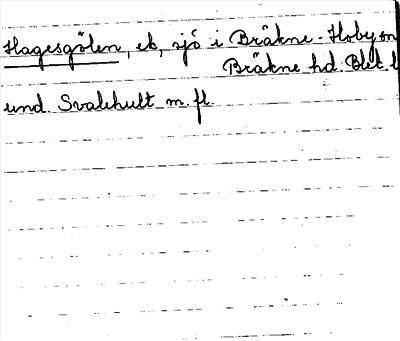 Hagesgölen, ek, sjö i Bräkne-Hoby sn
Bräkne hd. Blek. l
und. Svalehult m. fl.